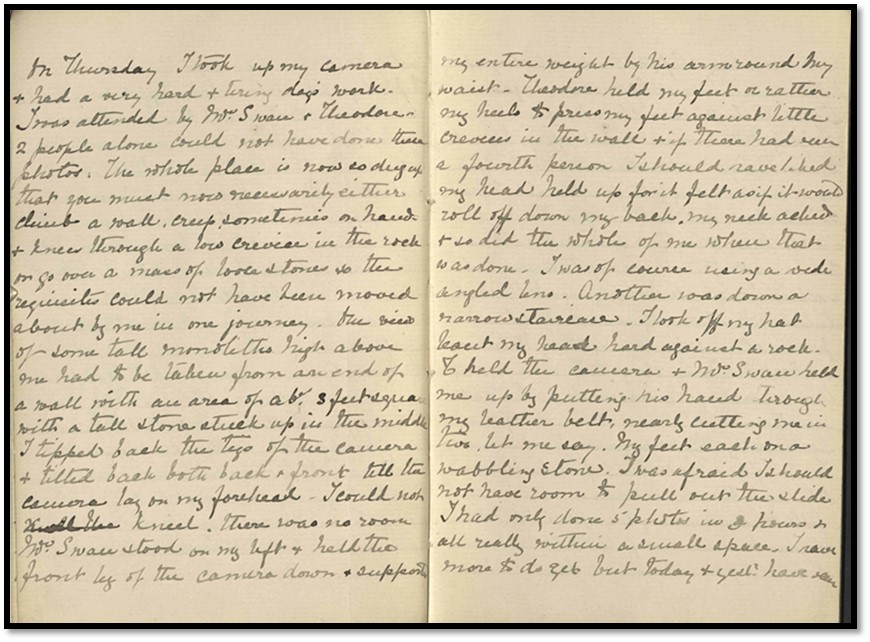 On Thursday I took up my camera
& had a very hard & tiring days work.
I was attended by Mr. Swan & Theodore.
2 people alone could not have done these
photos. The whole place is now so dug up
that you must now necessarily either
climb a wall, creep, sometimes on hands
& knees through a low crevice in the rock
or go over a mass of loose stones so the
requisites could not have been moved
about by me in one journey. One view
of some tall monoliths high above
me had to be taken from an end of
a wall with an area of abt. 3 feet square
with a tall stone stuck up in the middle
I tipped back the legs of the camera
& tilted back both back & front till the
camera lay on my forehead - I could not
kneel. there was no room
Mr. Swan stood on my left & held the
front leg of the camera down & supported
my entire weight by his arm round my
waist - Theodore held my feet or rather
my heels to press my feet against little
crevices in the wall & if there had been
a fourth person I should have liked
my head held up for it felt as if it would
roll off down my back, my neck ached
& so did the whole of me when that
was done. I was of course using a wide
angled lens. Another was down a
narrow staircase. I took off my hat
leant my head hard against a rock.
T held the camera & Mr. Swan held
me up by putting his hand through
my leather belt, nearly cutting me in
two, let me say. My feet each on a
wabbling stone. I was afraid I should
not have room to pull out the slide
I had only done 5 photos in 2 hours &
all really within a small space. I have
more to do yet but today & yest. have